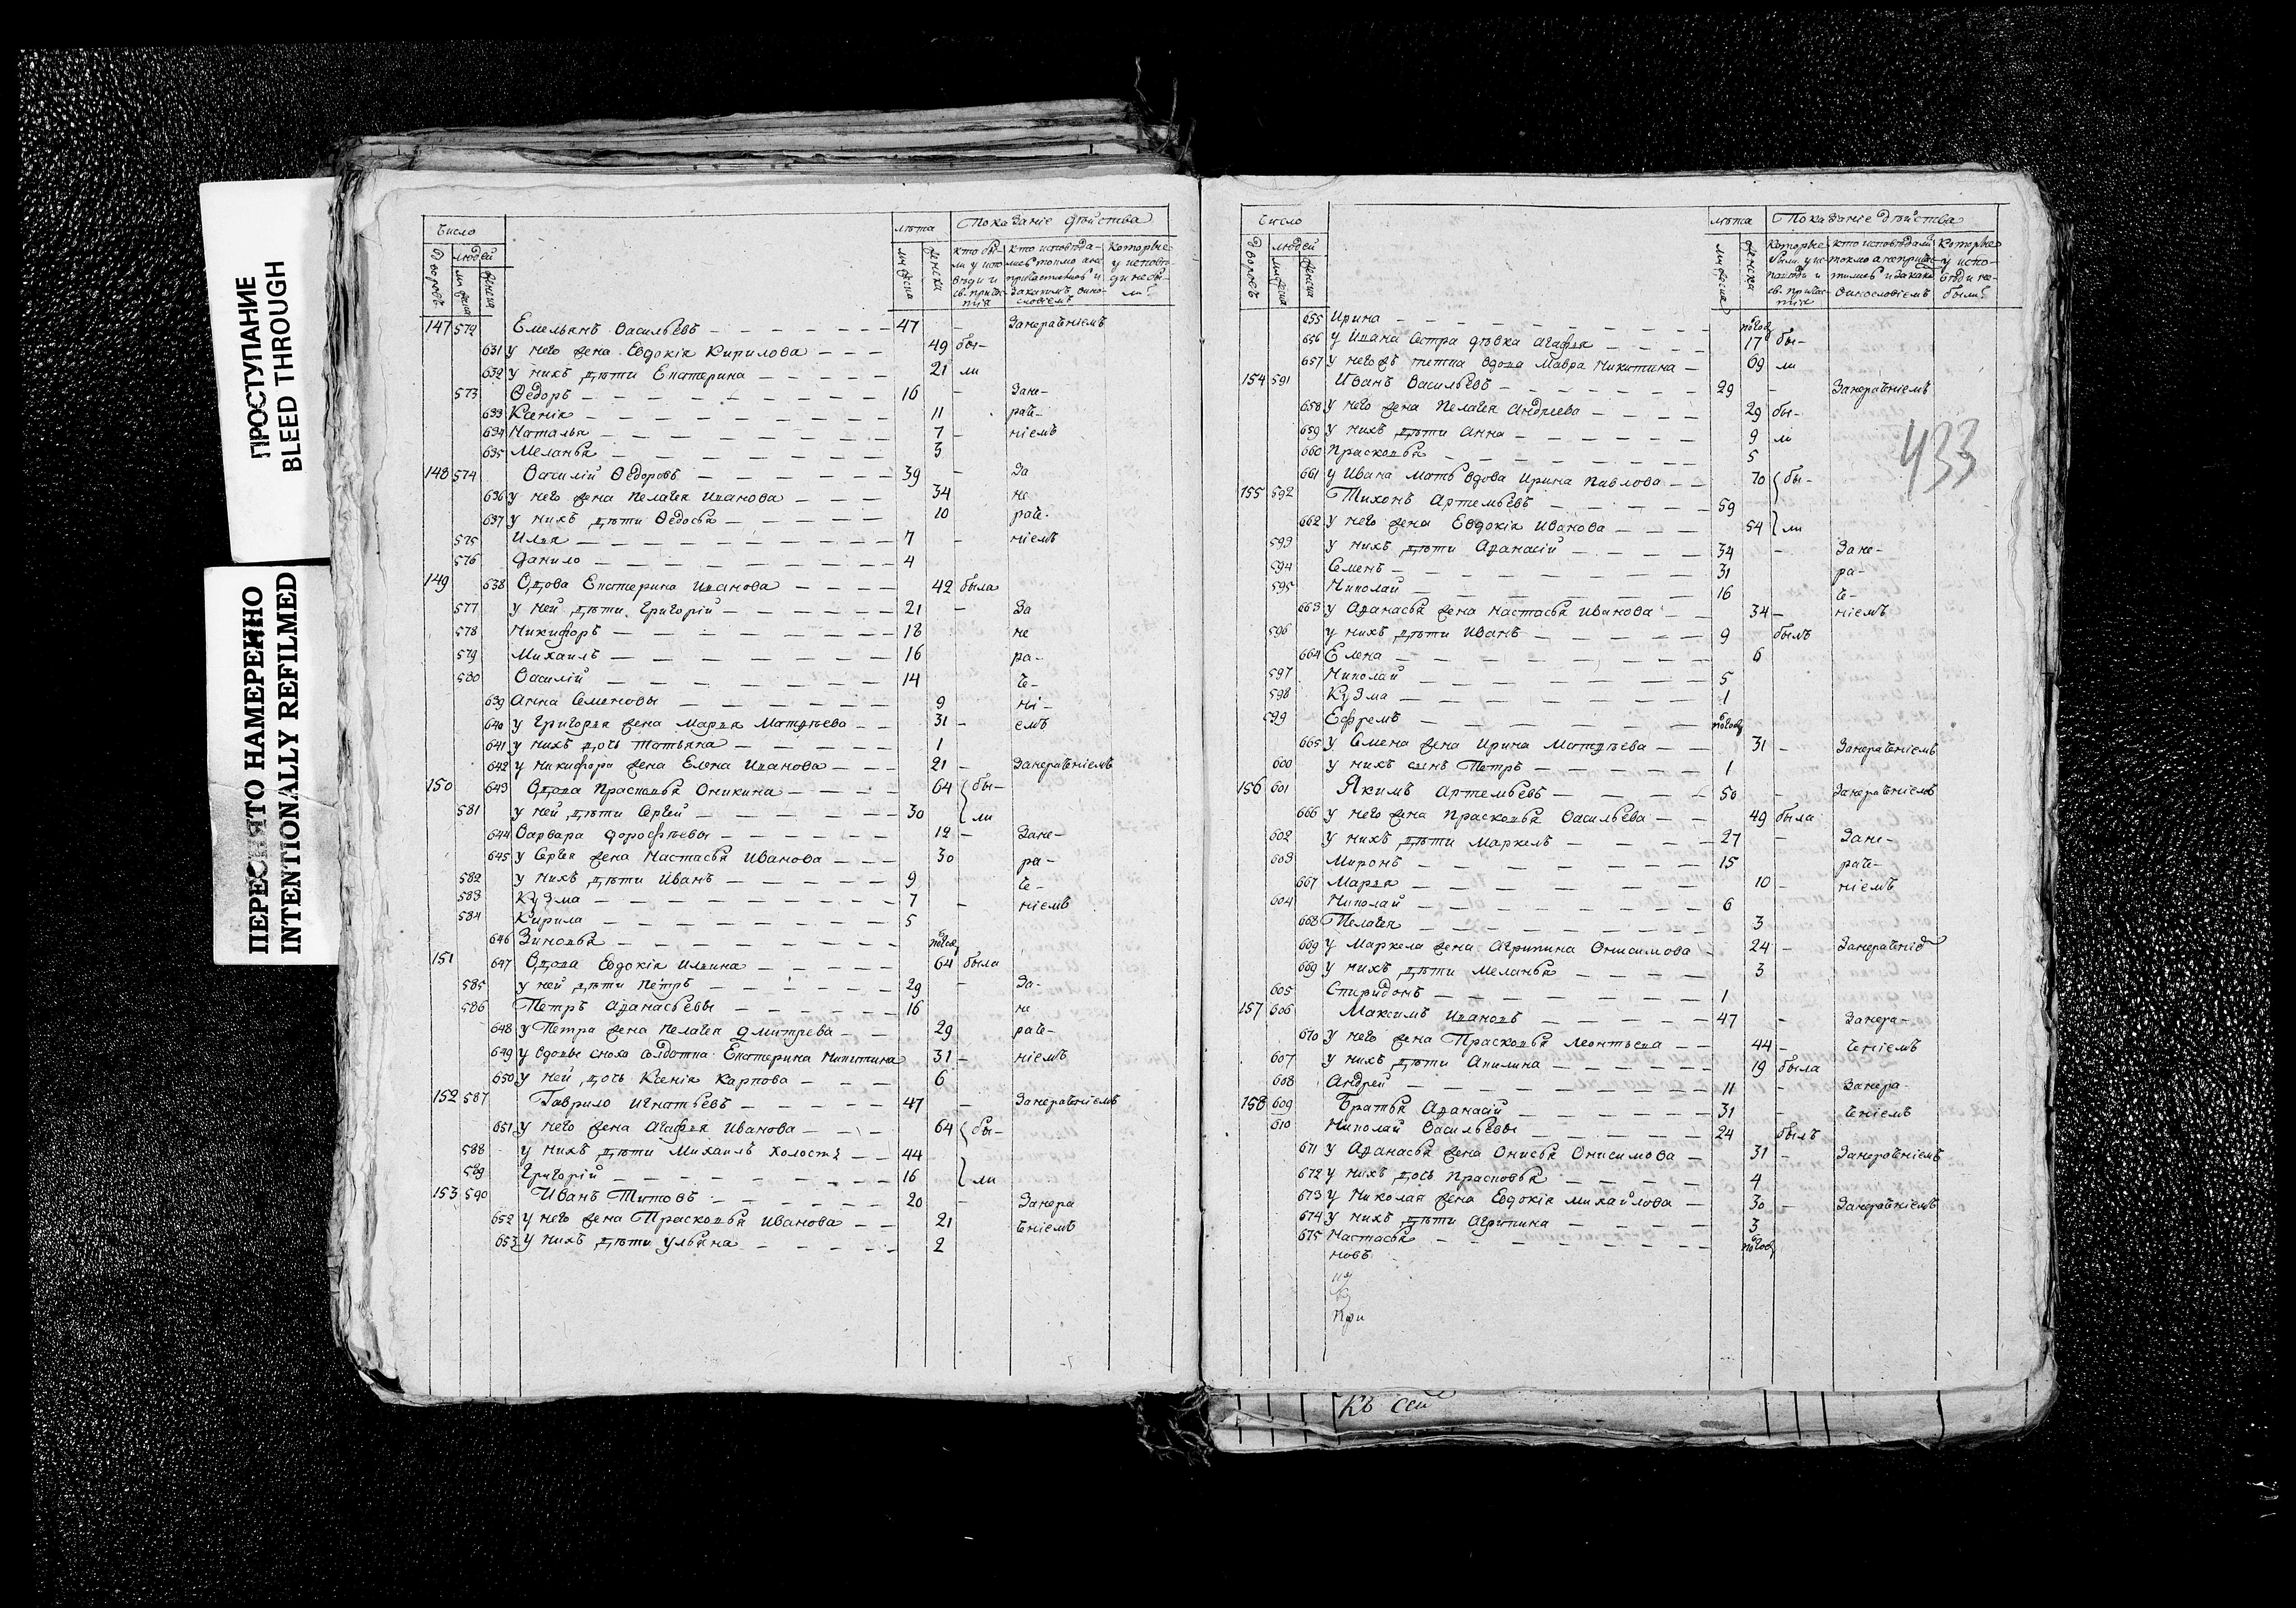 ПРОСТУПАНИЕ
BLEED THROUGH
ПЕРЕСНЯТО НАМЕРЕННО
INTENTIONALLY REFILMED
Число лѣта Показаніе дѣйства
дворовъ людей мужеска женска мужеска женска
147 572 Емельянъ Васильевъ 47 - Занераченіемъ
631 у него жена Евдокія Кирилова 49 бы-
632 у нихъ дѣти Екатерина 21 ли
573 Ѳедоръ 16 - Зане-
633 Ксенія 11 раче-
634 Наталья 7 - ніемъ
635 Меланья 3
148 574 Василій Ѳедоровъ 39 - За
636 у него жена Пелагея Иванова 34 не
637 у нихъ дѣти Ѳедосья 10 раче-
575 Илья 7 - ніемъ
576 Данило 4
149 638 Вдова Екатерина Иванова 42 была
577 у ней дѣти Григорій 21 - За
578 Никифоръ 18 не
579 Михаилъ 16 ра-
580 Василій 14 че-
639 Анна Семеновы 9 ні-
640 у Григорья жена Марья Матвѣева 31 - емъ
641 у нихъ дочь Татьяна 1
642 у Никифора жена Елена Иванова 21 - Занераченіемъ
150 643 Вдова Прасковья Оникина 64 бы-
581 у ней дѣти Сергей 30 ли
644 Варвара Дорофѣевы 12 - Зане-
645 у Сергея жена Настасья Иванова 30 ра-
582 у нихъ дѣти Иванъ 9 че-
583 Кузма 7 - ніемъ
584 Кирила 5
646 Зиновья полгод
151 647 Вдова Евдокія Ильина 64 была
585 у ней дѣти Петръ 29 - За-
586 Петръ Аѳанасьевы 16 не
648 у Петра жена Пелагея Дмитрева 29 раче-
649 у вдовы сноха солдатка Екатерина Никитина 31 - ніемъ
650 у ней дочь Ксенія Карпова 6
152 587 Гаврило Игнатьевъ 47 - Занераченіемъ
651 у него жена Агафья Иванова 64 бы-
588 у нихъ дѣти Михаилъ холостъ 44
589 Григорій 16 ли
153 590 Иванъ Титовъ 20 - Занера
652 у него жена Прасковья Иванова 21 ченіемъ
653 у нихъ дѣти Ульяна 2
Число лѣта Показаніе дѣйства
дворовъ людей мужеска женска мужеска женска
655 Ирина полгод
656 у Ивана сестра дѣвка Агафья 17 бы-
657 у негожъ тетка вдова Мавра Никитина 69 ли
154 591 Иванъ Васильевъ 29 - Занераченіемъ
658 у него жена Пелагея Андреева 29 бы-
659 у нихъ дѣти Анна 9 ли
660 Прасковья 5
661 у Ивана мать вдова Ирина Павлова 70 бы-
155 592 Тихонъ Артемьевъ 59
662 у него жена Евдокія Иванова 54 ли
593 у нихъ дѣти Аѳанасій 34 - Зане-
594 Семенъ 31 ра-
595 Николай 16 че-
663 у Аѳанасья жена Настасья Иванова 34 - ніемъ
596 у нихъ дѣти Иванъ 9 былъ
664 Елена 6
597 Николай 5
598 Кузма 1
599 Ефремъ полгод
665 у Семена жена Ирина Матвѣева 31 - Занераченіемъ
600 у нихъ сынъ Петръ 1
156 601 Якимъ Артемьевъ 50 - Занераченіемъ
666 у него жена Прасковья Васильева 49 была
602 у нихъ дѣти Маркелъ 27 - Зане-
603 Миронъ 15 раче-
667 Марья 10 - ніемъ
604 Николай 6
668 Пелагея 3
669 у Маркела жена Агрипина Онисимова 24 - Занераченіе
669 у нихъ дѣти Меланья 3
605 Спиридонъ 1
157 606 Максимъ Ивановъ 47 - Занера-
670 у него жена Прасковья Леонтьева 44 - ченіемъ
607 у нихъ дѣти Акилина 19 была
608 Андрей 11 - Занера-
158 609 Братья Аѳанасій 31 - ченіемъ
610 Николай Васильевы 24 былъ
671 у Аѳанасья жена Онисья Онисимова 31 - Занераченіемъ
672 у нихъ дочь Прасковья 4
673 у Николая жена Евдокія Михайлова 30 - Занераченіемъ
674 у нихъ дѣти Агрипина 3
675 Настасья полгод
новъ
При
433
Къ сей